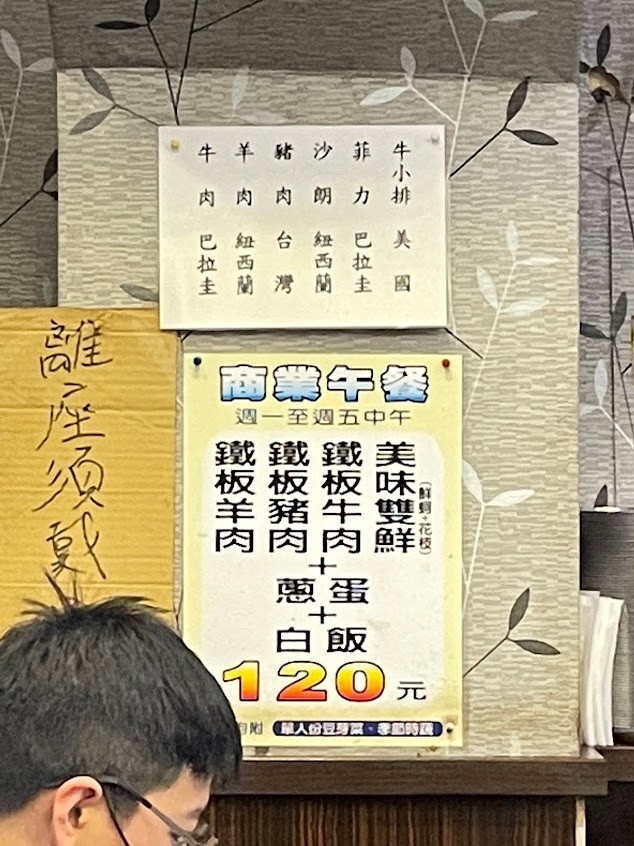 牛小排 美國
菲力 巴拉圭
沙朗 紐西蘭
豬肉 台灣
羊肉 紐西蘭
牛肉 巴拉圭
商業午餐
週一至週五中午
美味雙鮮(鮮蚵+花枝)
鐵板牛肉
鐵板豬肉
鐵板羊肉
+
蔥蛋
+
白飯
120元
附 單人份豆芽菜・季節時蔬
離座須戴